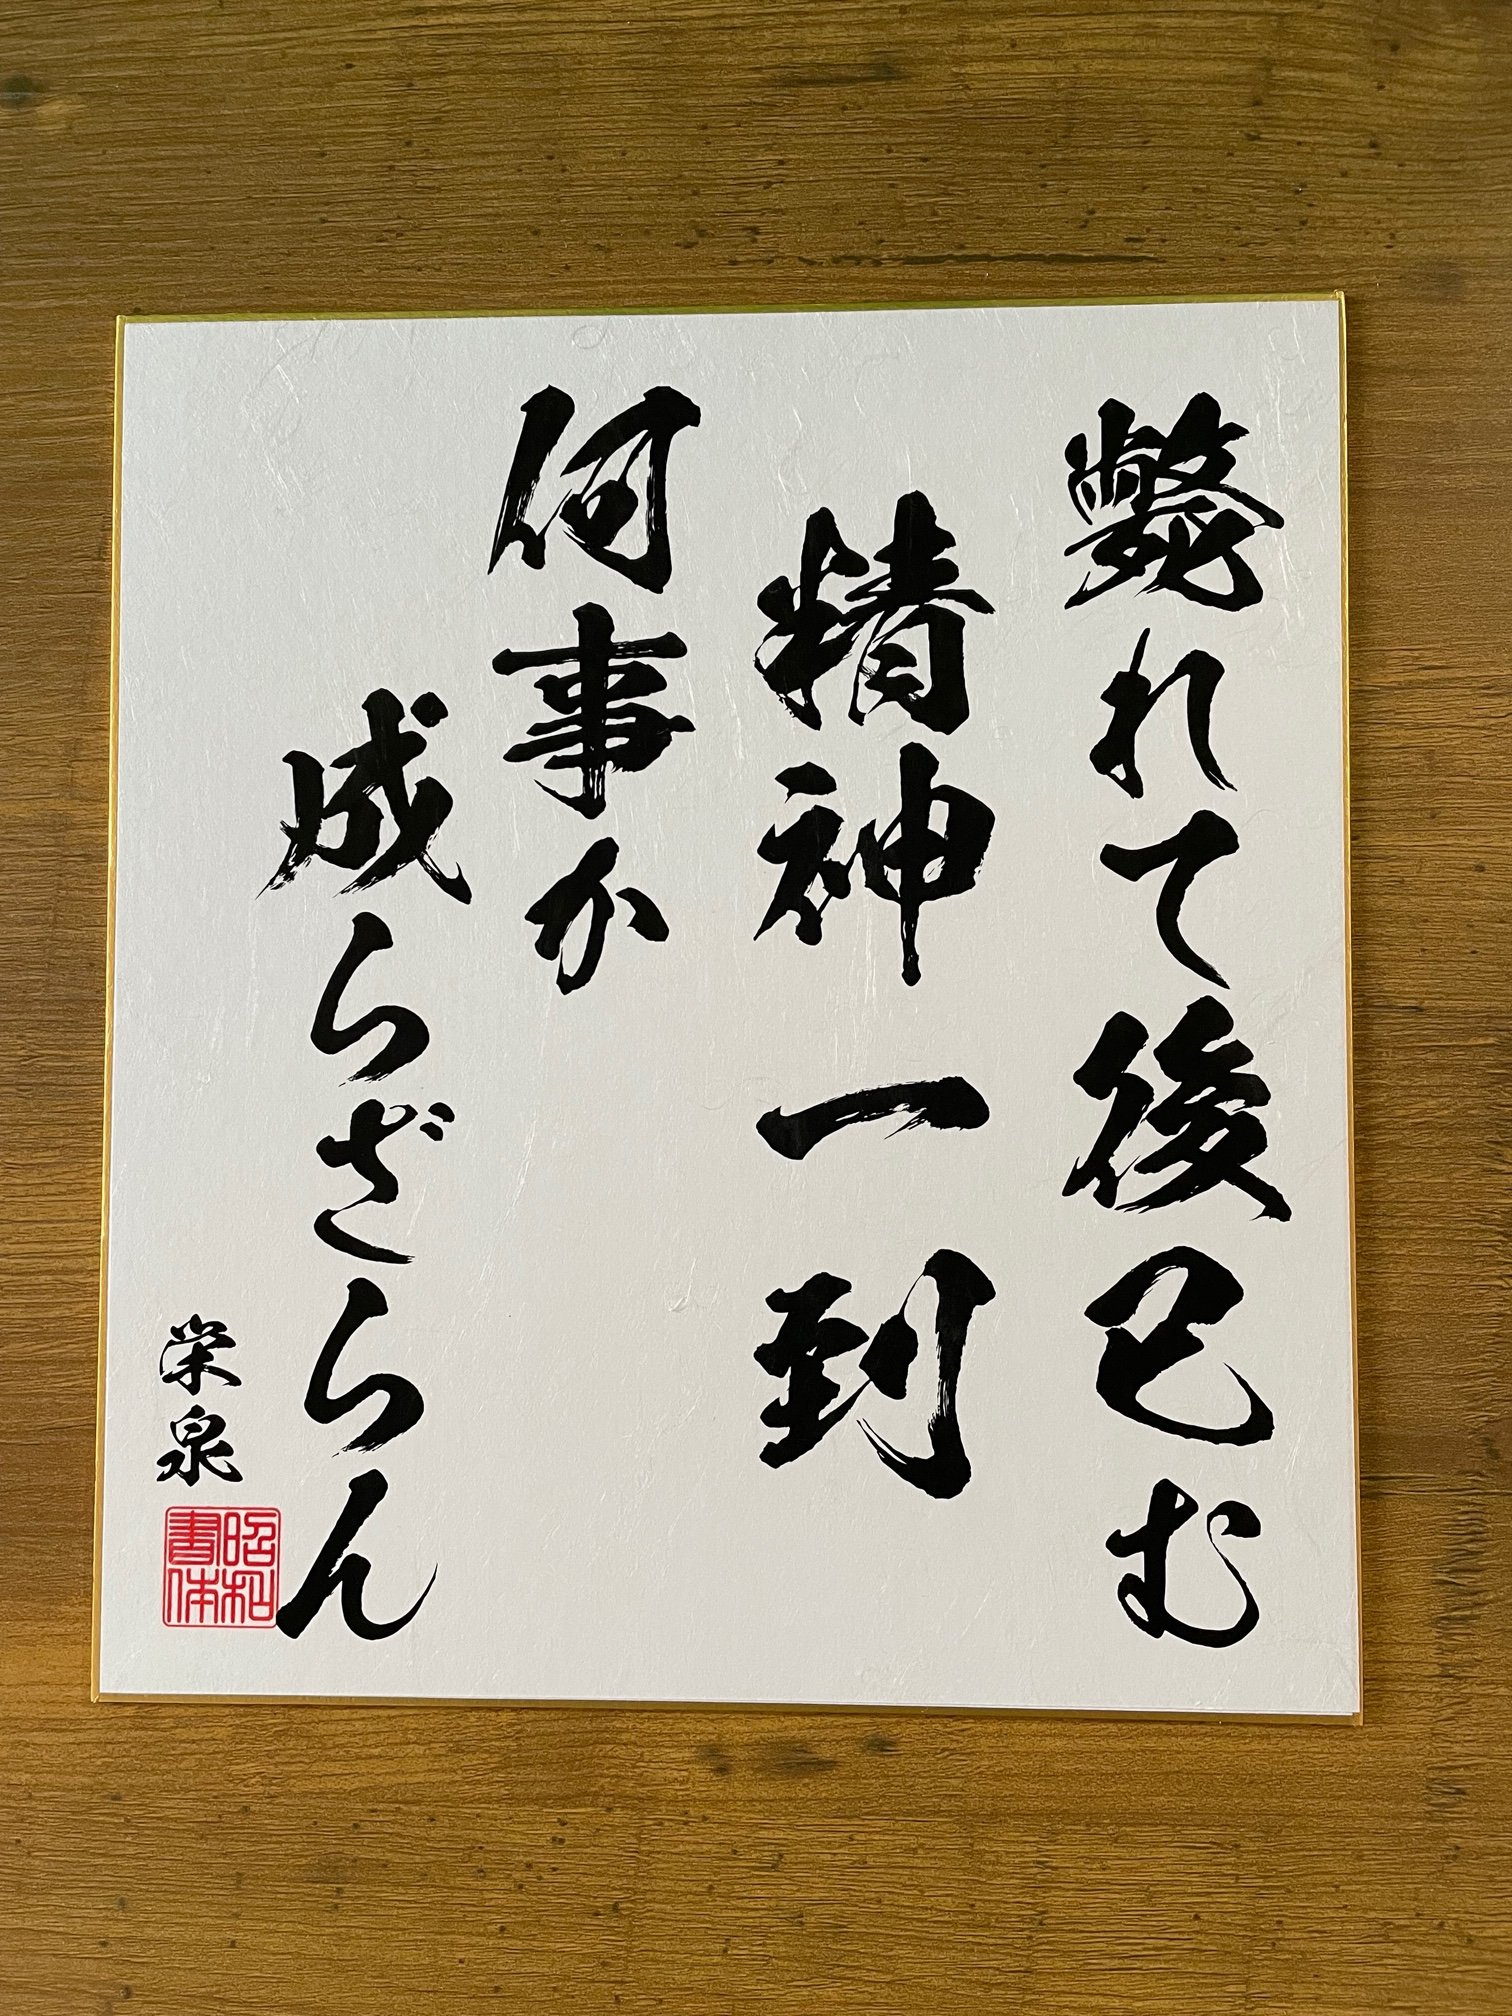 斃れて後已む
精神一到
何事か
成らざらん
栄泉
昭和
書体